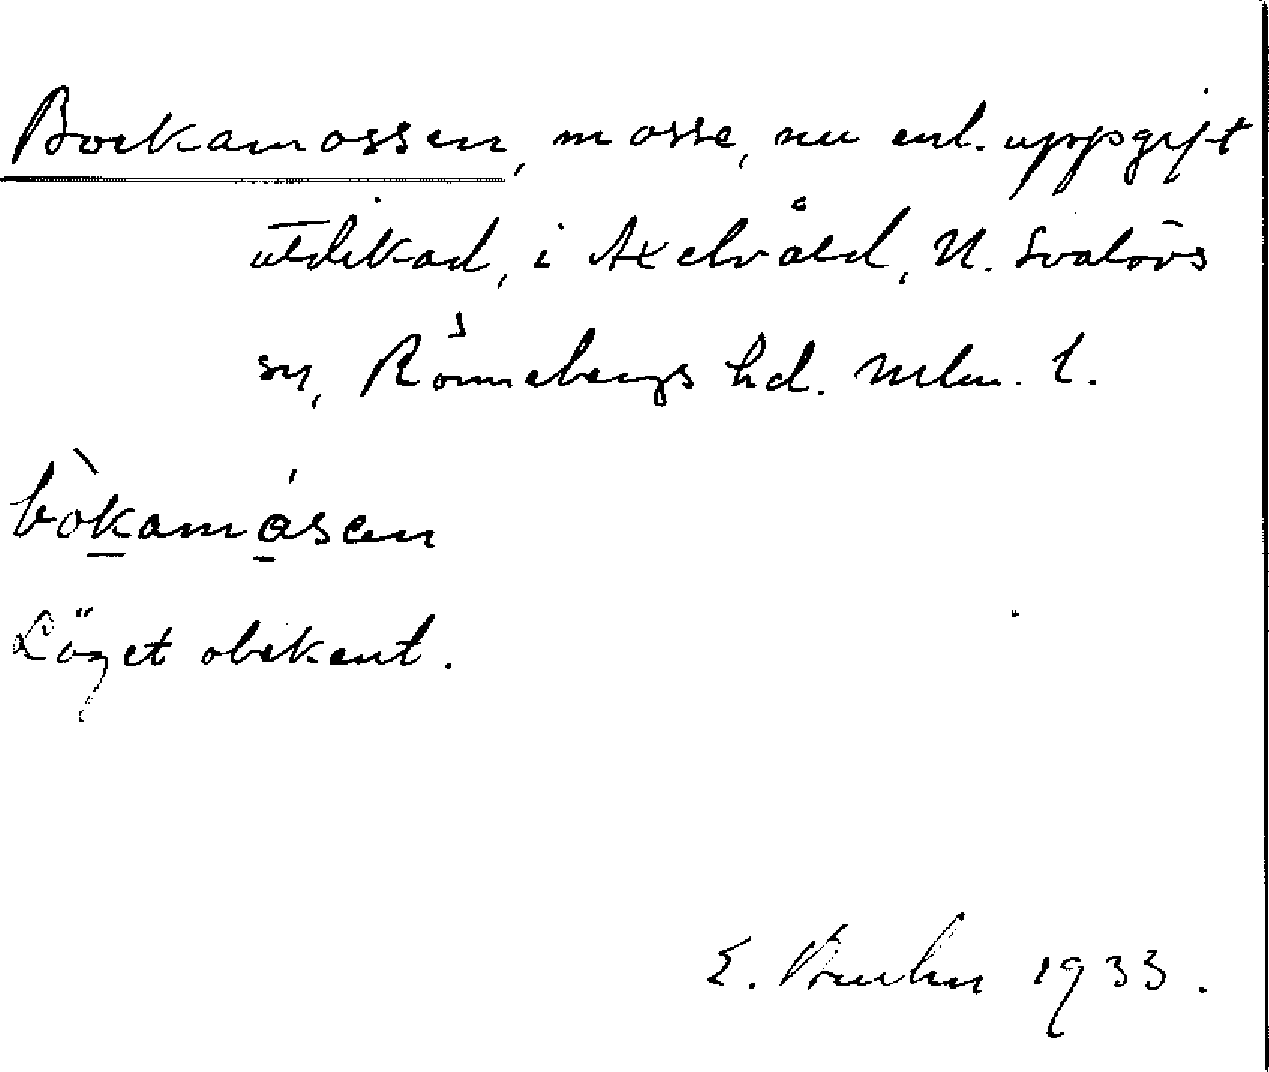 Bockamossen, mosse, nu enl. uppgift
utdikad, i Axelvåld, N. Svalövs
sn, Rönnebergs hd. Mlm. l.
bòkamåsen
Läget obekant.
E. Bruhn 1933.